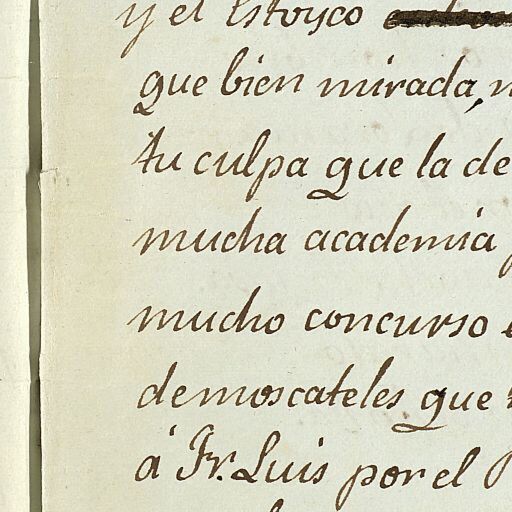 y el Estoyco
que bien mirada,
tu culpa que la de
mucha academia
mucho concurso
demoscateles que
á Fr. Luis por el